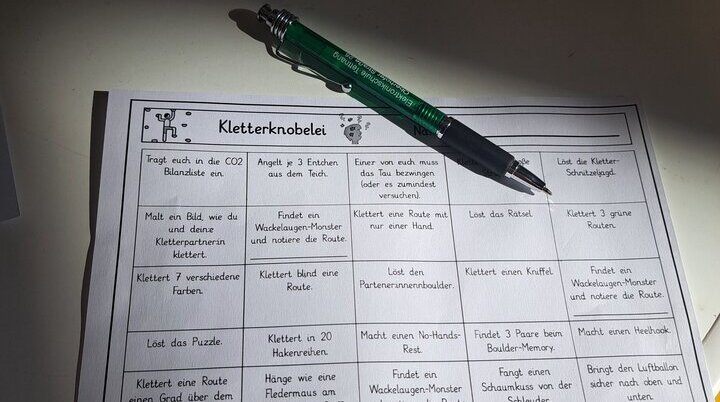 Elektronikschule Tettnang
Kletterknobelei
Na
Tragt euch in die CO2
Bilanzliste ein.
Angelt je 3 Entchen
aus dem Teich.
Einer von euch muss
das Tau bezwingen
(oder es zumindest
versuchen).
Löst die Kletter-
Schnitzeljagd.
Malt ein Bild, wie du
und dein:e
Kletterpartner:in
klettert.
Findet ein
Wackelaugen-Monster
und notiere die Route.
Klettert eine Route mit
nur einer Hand.
Löst das Rätsel.
Klettert 3 grüne
Routen.
Klettert 7 verschiedene
Farben.
Klettert blind eine
Route.
Löst den
Partener:innenboulder.
Klettert einen Kniffel.
Findet ein
Wackelaugen-Monster
und notiere die Route.
Löst das Puzzle.
Klettert in 20
Hakenreihen.
Macht einen No-Hands-
Rest.
Findet 3 Paare beim
Boulder-Memory.
Macht einen Heelhook.
Klettert eine Route
einen Grad über dem
Hänge wie eine
Fledermaus am
Findet ein
Wackelaugen-Monster
und notiere die Route.
Fangt einen
Schaumkuss von der
Schleuder
Bringt den Luftballon
sicher nach oben und
unten.